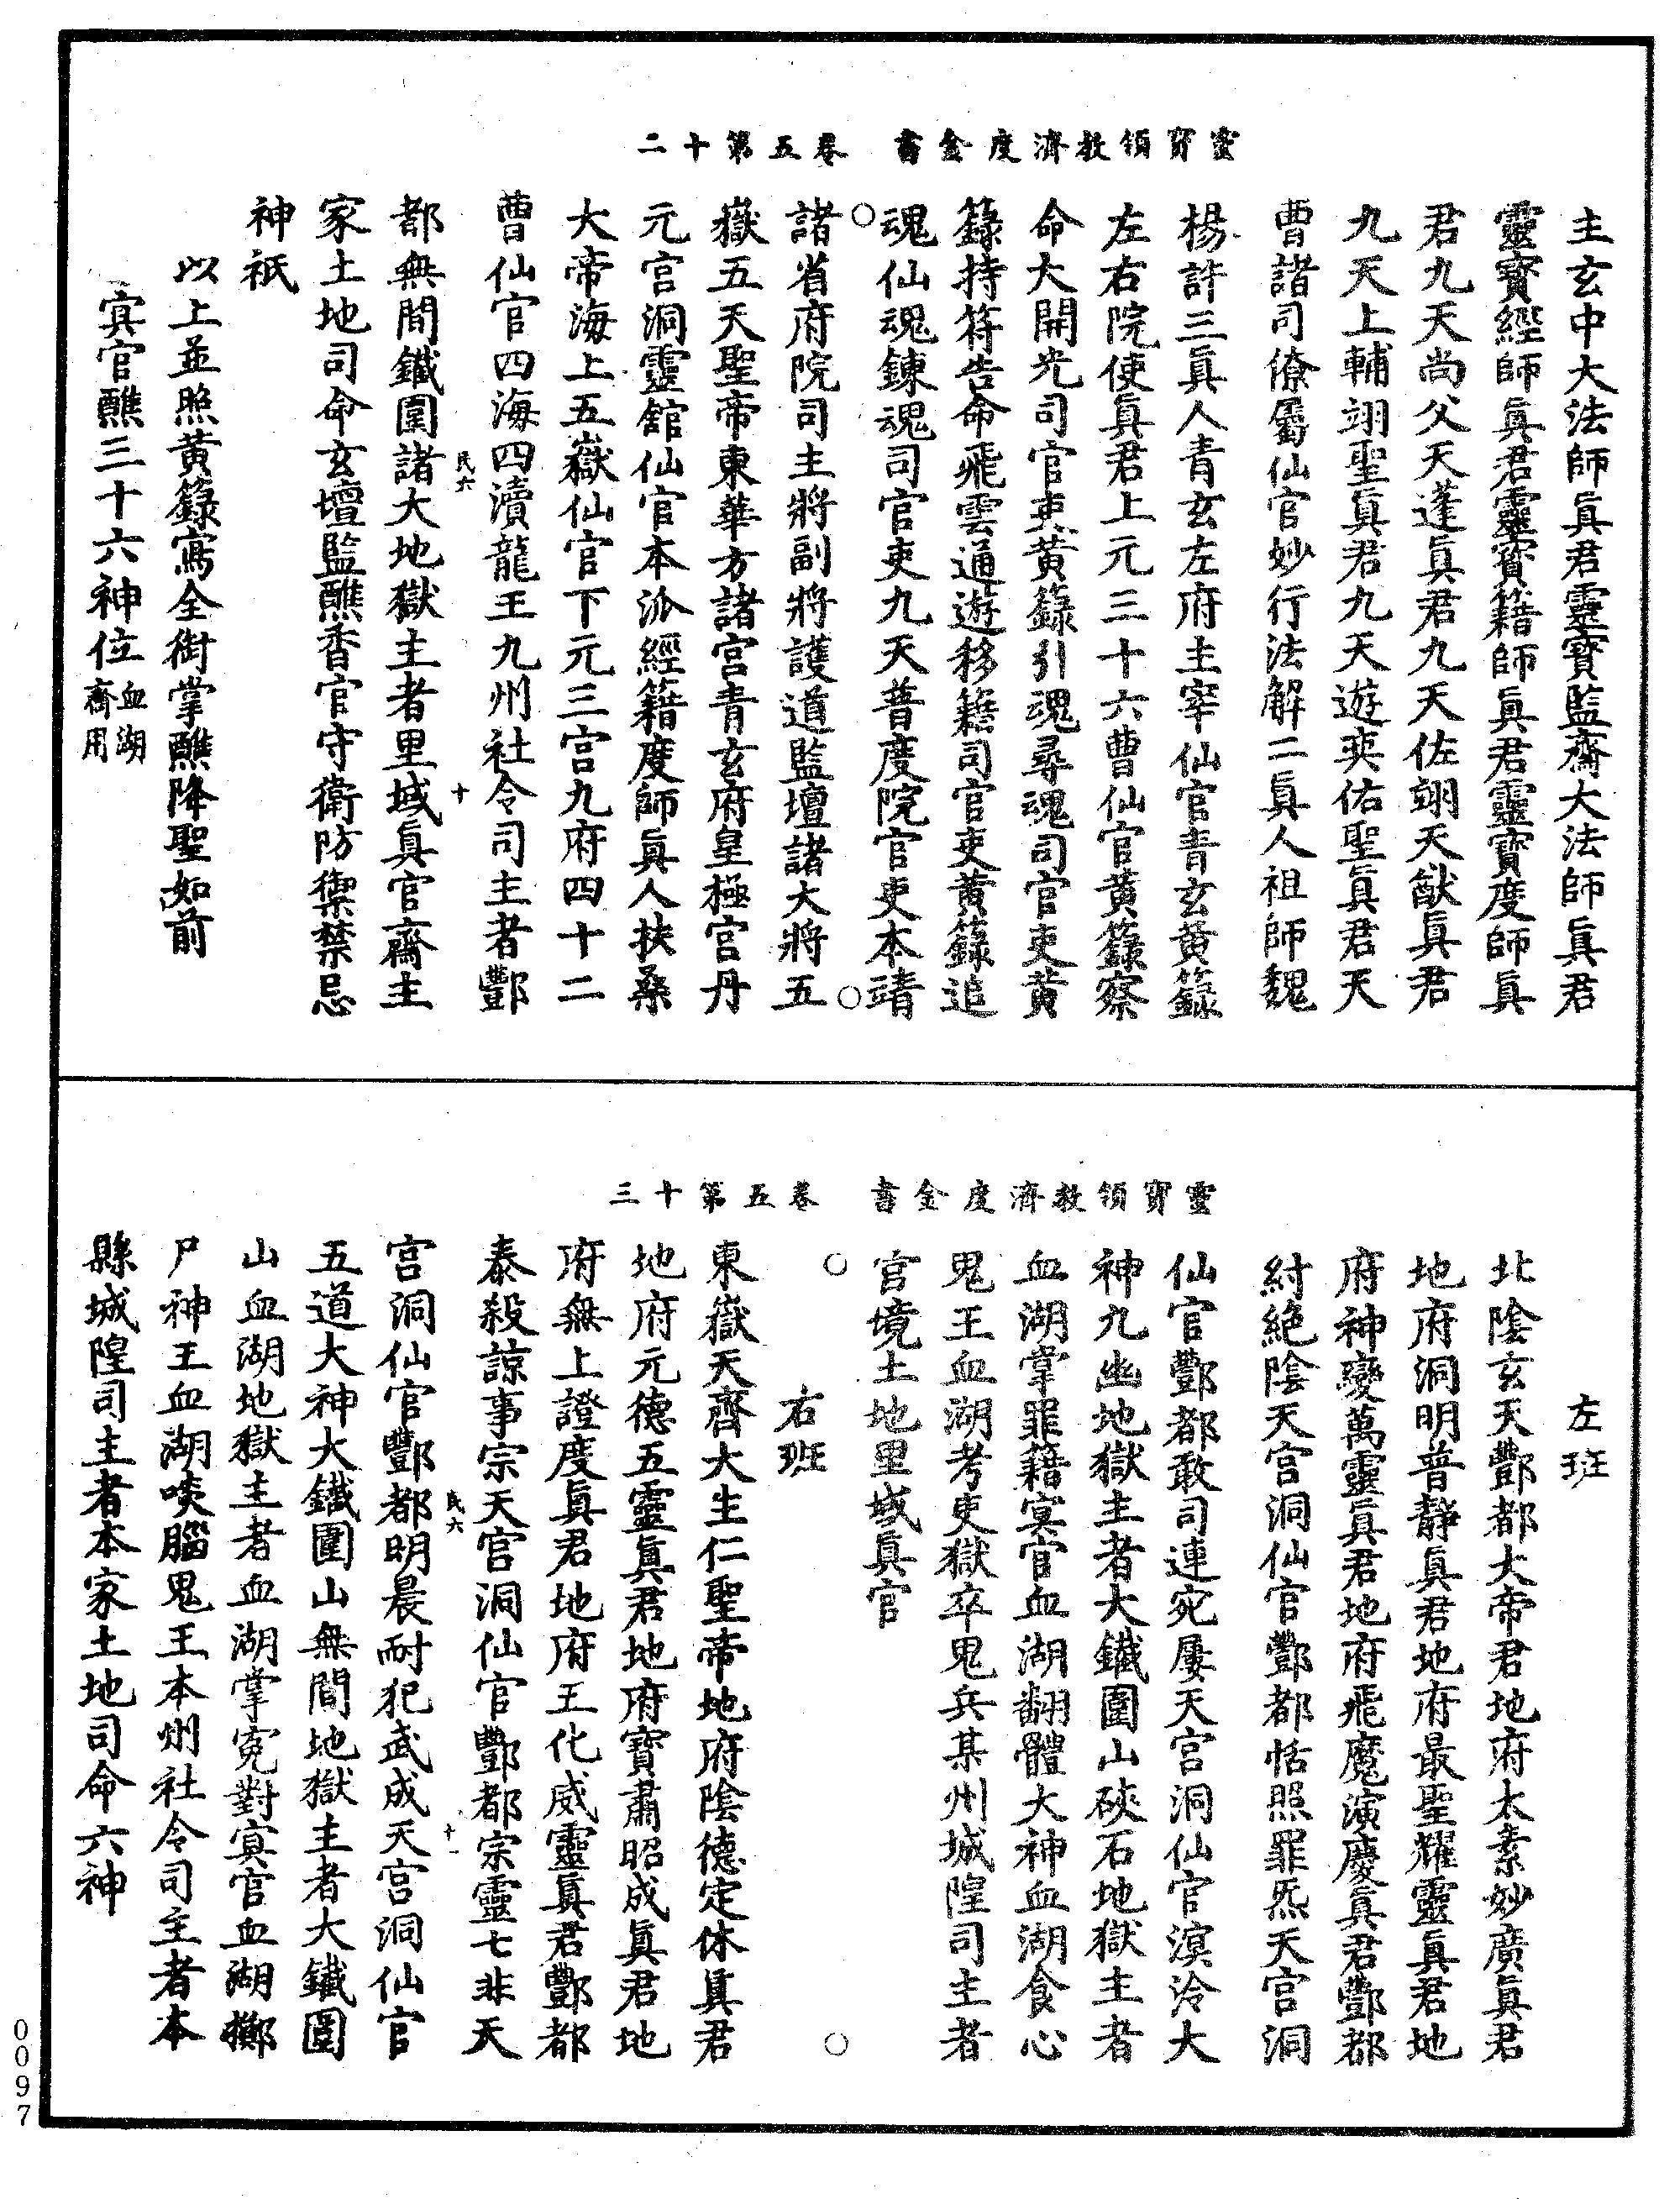 靈寶領教濟度金書　卷五第十二
主玄中大法師眞君靈寶監齋大法師眞君
靈寶經師眞君靈寶籍師眞君靈寶度師眞
君九天尚父天蓬眞君九天佐翊天猷眞君
九天上輔翊聖眞君九天遊奕佑聖眞君天
曹諸司僚屬仙官妙行法解二眞人祖師魏
楊許三眞人青玄左府主宰仙官青玄黃籙
左右院使眞君上元三十六曹仙官黃籙察
命大開光司官吏黃籙引魂尋魂司官吏黃
籙持符告命飛雲通遊移籍司官吏黃籙追
魂仙魂鍊魂司官吏九天普度院官吏本靖
諸省府院司主將副將護道監壇諸大將五
嶽五天聖帝東華方諸宮青玄府皇極宮丹
元宮洞靈舘仙官本派經籍度師眞人扶桑
大帝海上五嶽仙官下元三宮九府四十二
曹仙官四海四瀆龍王九州社令司主者酆
都無間鐵圍諸大地獄主者里域眞官齋主
家土地司命玄壇監醮香官守衛防禦禁忌
神祇
以上並照黃籙寫全銜掌醮降聖如前
冥官醮三十六神位血湖齋用
民六
十
靈寶領教濟度金書　卷五第十三
左班
北陰玄天酆都大帝君地府太素妙廣眞君
地府洞明普靜眞君地府最聖耀靈眞君地
府神變萬靈眞君地府飛魔演慶眞君酆都
紂絕陰天宮洞仙官酆都恬照罪炁天宮洞
仙官酆都敢司連宛屢天宮洞仙官溟泠大
神九幽地獄主者大鐵圍山硤石地獄主者
血湖掌罪籍冥官血湖翻體大神血湖食心
鬼王血湖考吏獄卒鬼兵某州城隍司主者
宮境土地里域眞官
右班
東嶽天齊大生仁聖帝地府陰德定休眞君
地府元德五靈眞君地府寶肅昭成眞君地
府無上證度眞君地府王化威靈眞君酆都
泰殺諒事宗天宮洞仙官酆都宗靈七非天
宮洞仙官酆都明晨耐犯武成天宮洞仙官
五道大神大鐵圍山無間地獄主者大鐵圍
山血湖地獄主者血湖掌寃對冥官血湖擲
尸神王血湖啖腦鬼王本州社令司主者本
縣城隍司主者本家土地司命六神
民六
十一
0097